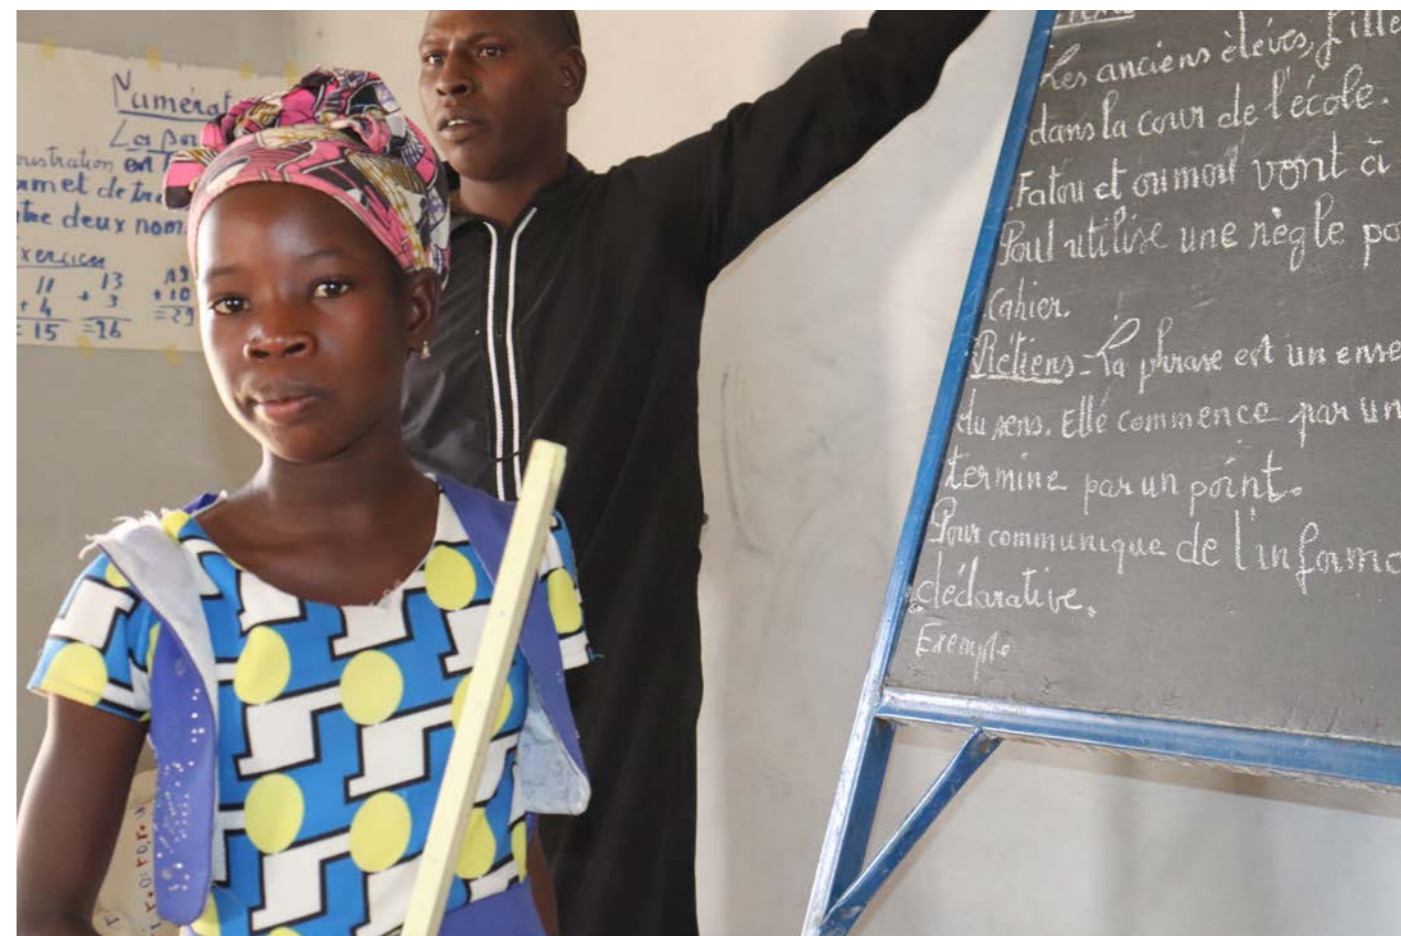 Numérat
La
nstration en
rmet de
tre deux nom
Exercices
11 13 19
+ 4 + 3 + 10
= 15 = 16 = 29
Les anciens élèves, fille
dans la cour de l'école.
Fatou et oumou vont à
Paul utilise une règle po
Cahier.
La phrase est un ense
du sens. Elle commence par un
termine par un point.
Pour communique de l'informa
déclarative.
Exemple